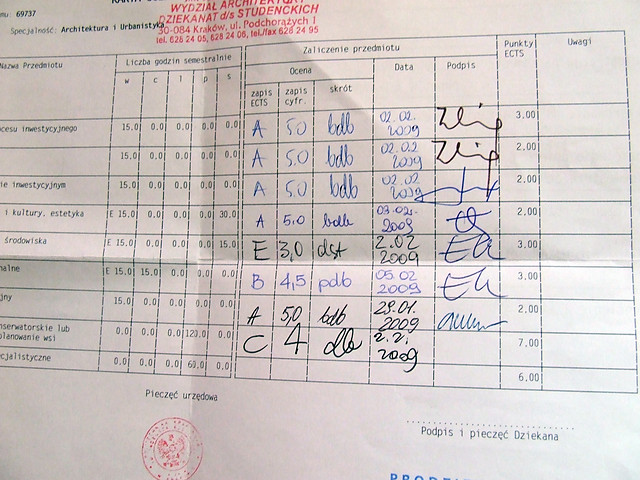 WYDZIAŁ ARCHITEKTURY
DZIEKANAT d/s STUDENCKICH
30-084 Kraków, ul. Podchorążych 1
tel. 628 24 05, 628 24 06, tel./fax 628 24 95
69737
Specjalność: Architektura i Urbanistyka
Nazwa Przedmiotu Liczba godzin semestralnie Zaliczenie przedmiotu Punkty ECTS Uwagi
w c l p s Ocena Data Podpis
zapis ECTS zapis cyfr. skrót
inwestycyjnego 15.0 0.0 0.0 0.0 0.0 A 5.0 bdb 02.02.2009 3.00
15.0 0.0 0.0 0.0 0.0 A 5.0 bdb 02.02.2009 2.00
ie inwestycyjnym 15.0 0.0 0.0 0.0 0.0 A 5.0 bdb 02.02.2009 2.00
i kultury. estetyka E 15.0 0.0 0.0 0.0 30.0 A 5.0 bdb 03.02.2009 2.00
środowiska E 15.0 0.0 0.0 0.0 15.0 E 3,0 dst 2.02 2009 3.00
E 15.0 15.0 0.0 0.0 0.0 B 4,5 pdb 05.02 2009 3.00
15.0 0.0 0.0 0.0 0.0 A 5,0 bdb 29.01.2009 2.00
nserwatorskie lub
planowanie wsi 0.0 0.0 0.0 120.0 0.0 C 4 db 2.2.2009 7.00
cjalistyczne 0.0 0.0 0.0 60.0 0.0 6.00
Pieczęć urzędowa
Podpis i pieczęć Dziekana